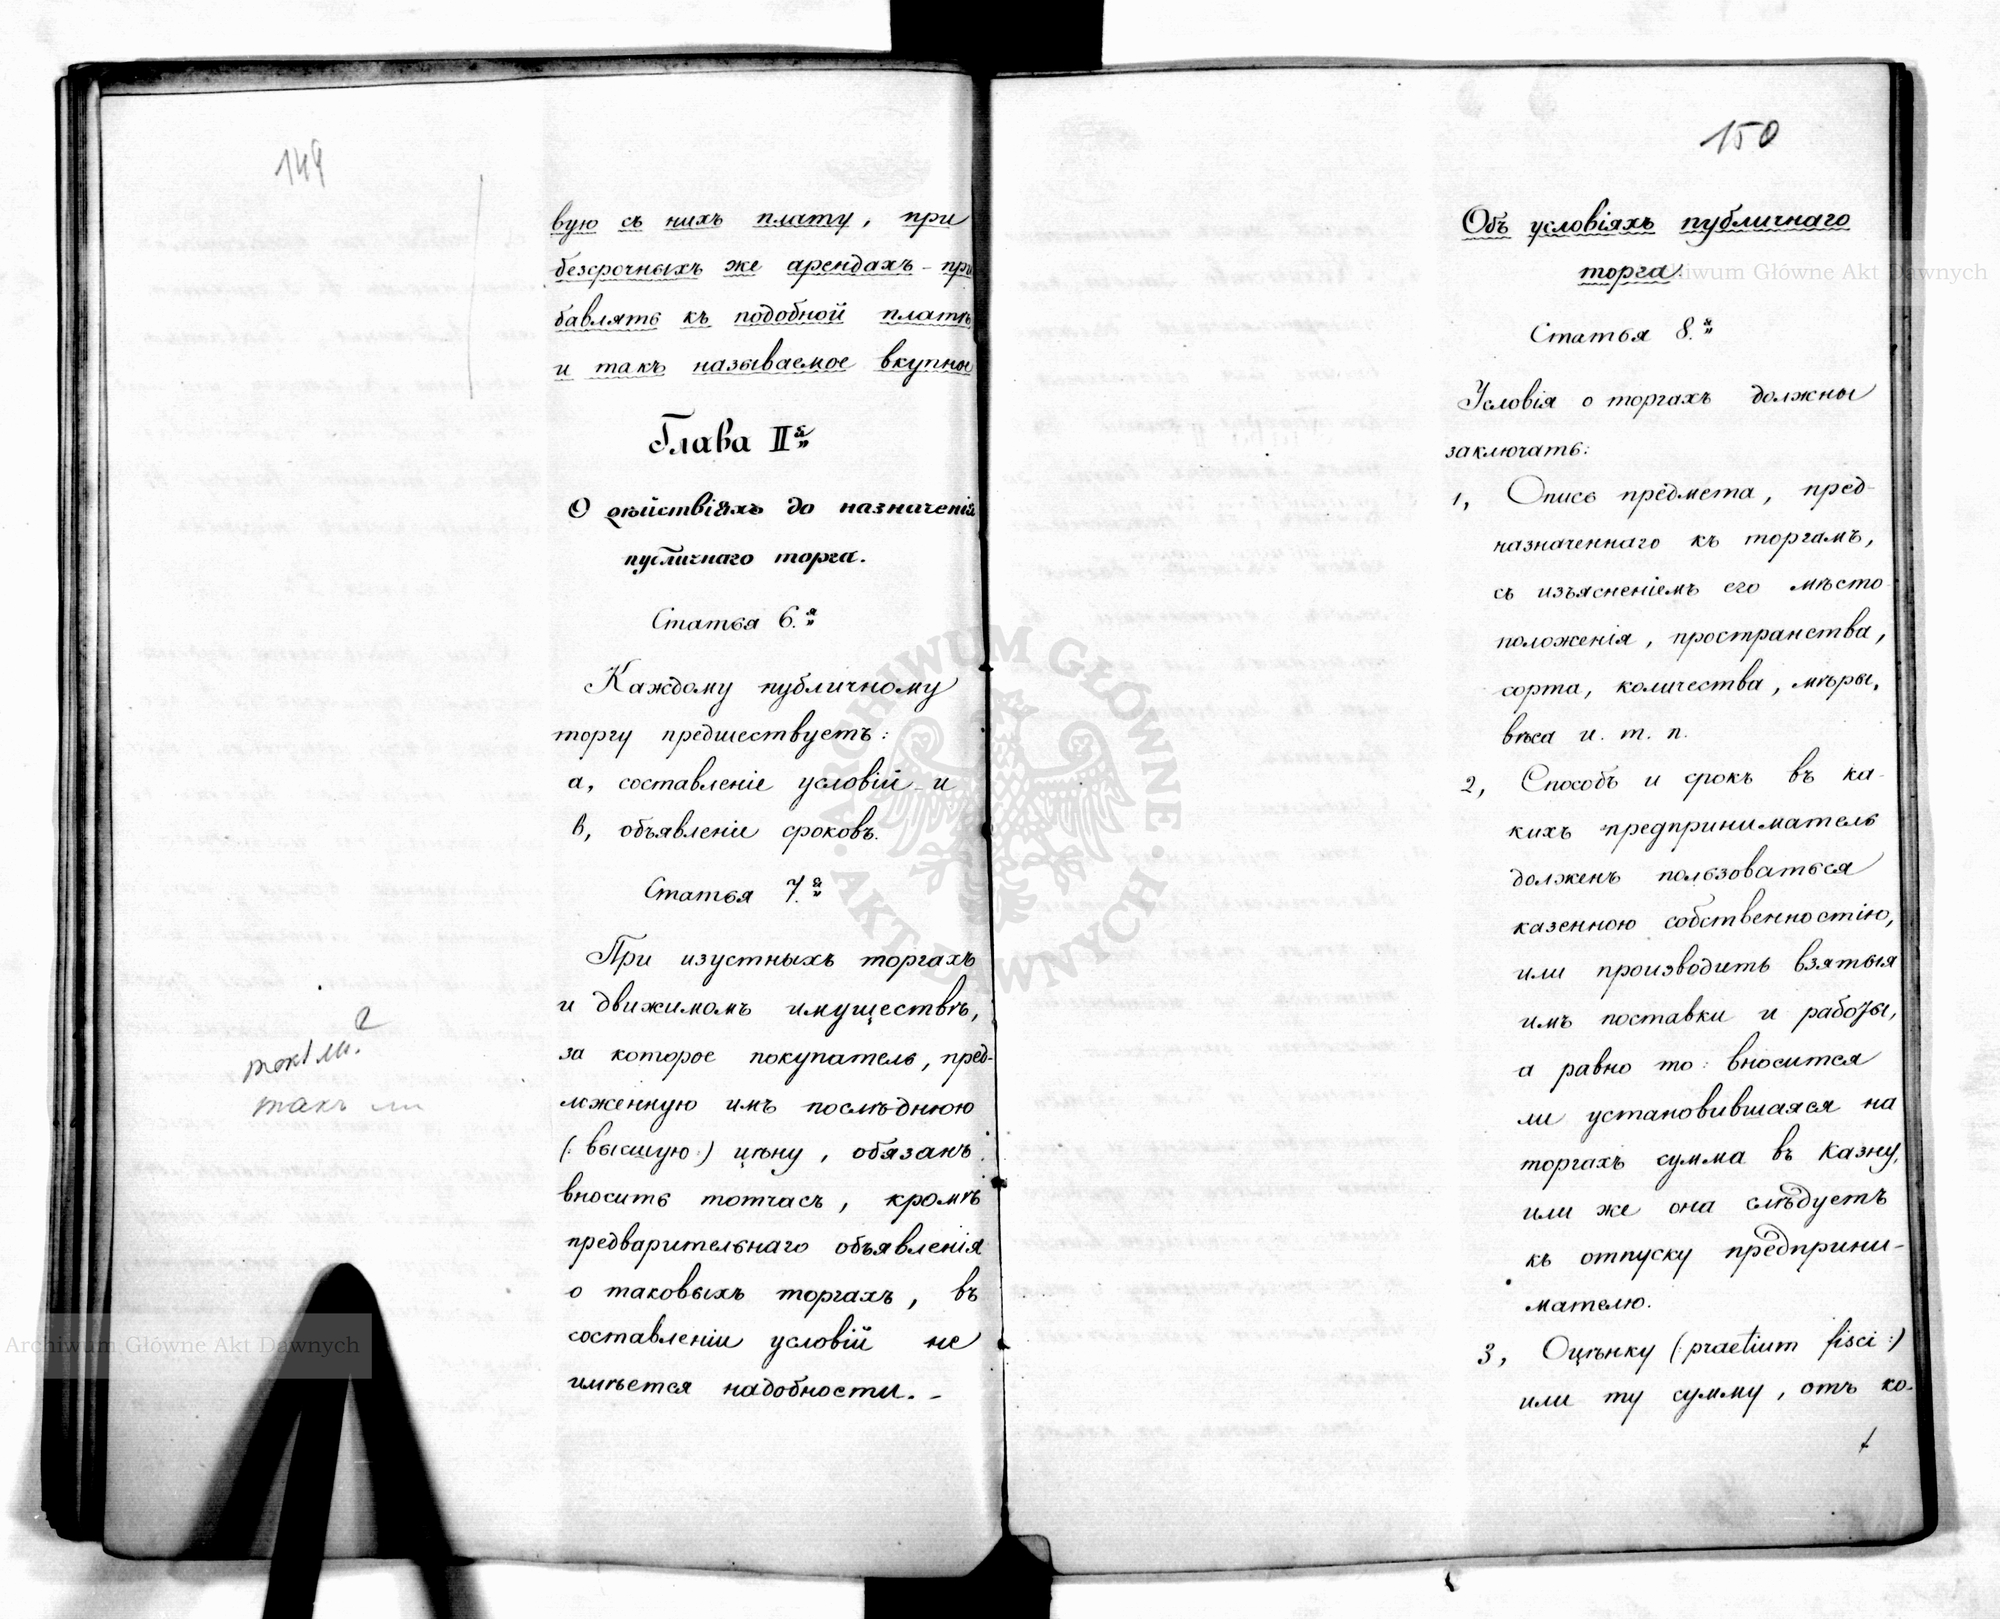 149
вую съ нихъ плату, при
безсрочныхъ же арендахъ - при
бавлять къ подобной платѣ
и такъ называемое вкупное
Глава II.я
О дѣйствіяхъ до назначенія
публичнаго торга.
Статья 6.я
Каждому публичному
торгу предшествуетъ:
а, составленіе условій и
в, объявленіе сроковъ.
Статья 7.я
При изустныхъ торгахъ
и движимомъ имуществѣ,
за которое покупатель, пред-
ложенную имъ послѣднюю
(: высшую :) цѣну, обязанъ
вносить тотчасъ, кромѣ
предварительнаго объявленія
о таковыхъ торгахъ, въ
составленіи условій не
имѣется надобности. -
такъ ли
150
Объ условіяхъ публичнаго
торга.
Статья 8.я
Условія о торгахъ должны
заключать:
1, Опись предмета, пред-
назначеннаго къ торгамъ,
съ изъясненіемъ его мѣсто
положенія, пространства,
сорта, количества, мѣры,
вѣса и. т. п.
2, Способъ и срокъ въ ка-
кихъ предприниматель
долженъ пользоваться
казенною собственностію,
или производить взятыя
имъ поставки и работы,
а равно то: вносится
ли установившаяся на
торгахъ сумма въ казну,
или же она слѣдуетъ
къ отпуску предприни-
мателю.
3, Оцѣнку (: praetium fisci :)
или ту сумму, отъ ко-
Archiwum Główne Akt Dawnych
Archiwum Główne Akt Dawnych
ARCHIWUM GŁÓWNE · AKT DAWNYCH ·